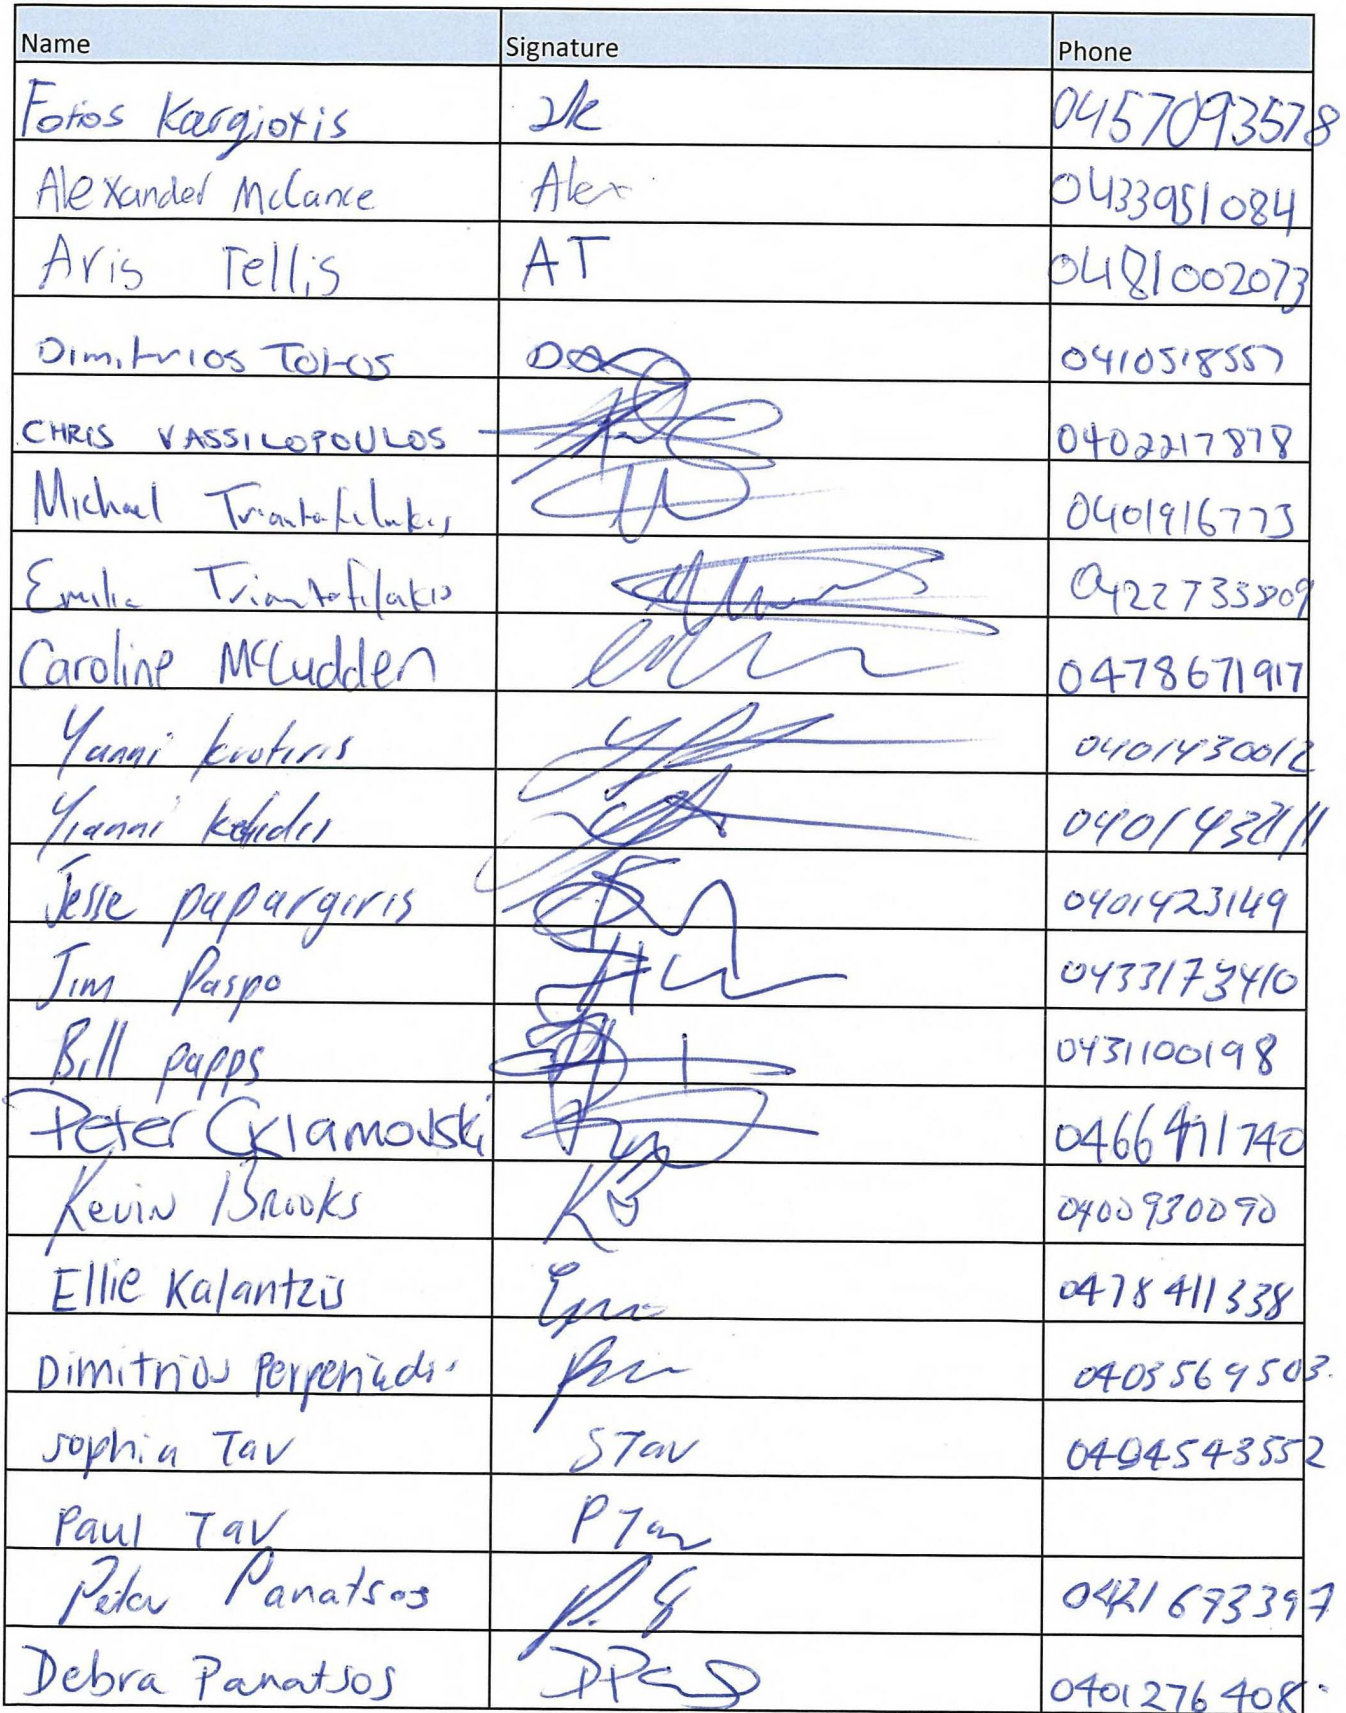 Name Signature Phone
Fotos Kargiotis 0457093578
Alexander McCance Alex 0433951084
Aris Tellis AT 0481002073
Dimitrios Totos 0410518557
CHRIS VASSILOPOULOS 0402217878
Michael Triantafilakis 0401916773
Emilia Triantafilakis
Caroline McCudden 0478671917
Yanni 0401430012
Yianni
Jesse papargiris 0401423149
Jim Paspo 0433173410
Bill papps 0431100198
Peter Cklamovski
Kevin Brooks KB 0400930090
Ellie Kalantzis 0478411338
Dimitrios
Sophia Tav STav
Paul Tav PTav
Peter Panatsos
Debra Panatsos 0401276408